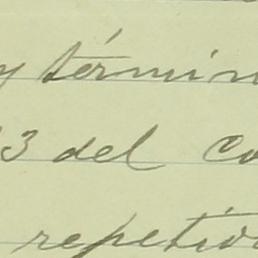 y términ
3 del co
repetido